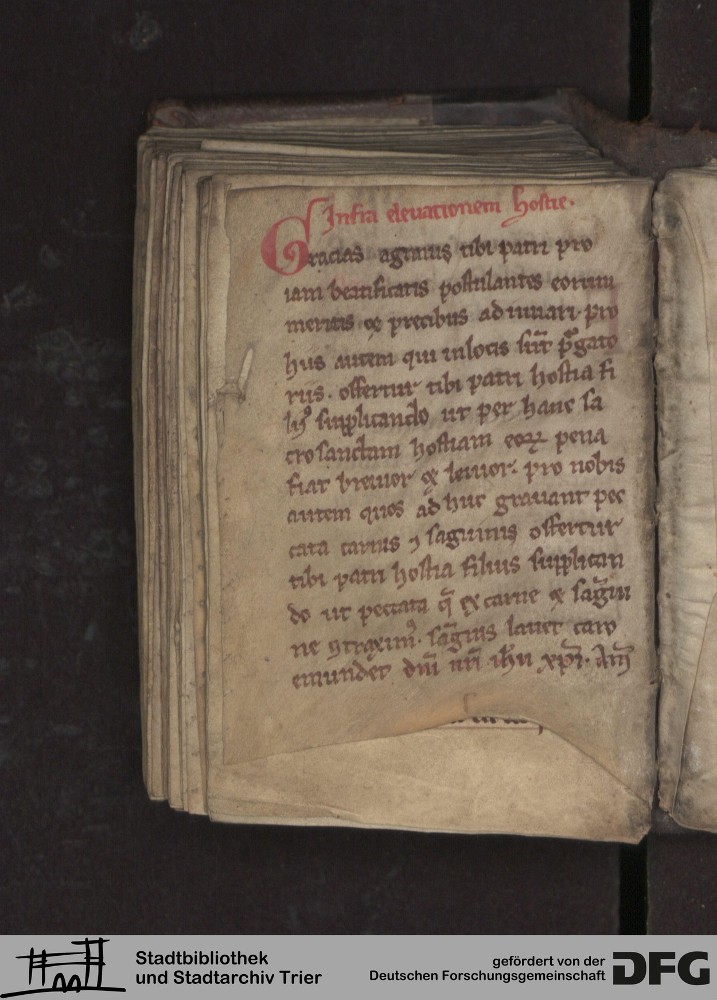 Infra eleuationem hostie.
Gracias agimus tibi patri pro
iam beatificatis postulantes eorum
meritis et precibus adiuuari. pro
hus autem qui inlocis sūt p̄gato
riis. offertur tibi patri hostia fi
liꝰ supplicando ut per hanc sa
crosanctam hostiam eoꝝ pena
fiat breuior et leuior. pro nobis
autem quos adhuc grauant pec
cata carnis ⁊ saguinis offertur
tibi patri hostia filius supplican
do ut peccata q̄ ex carne et sāgui
ne ꝯtraximꝰ. sāguis lauet caro
emundet dn̄i nr̄i ihū xp̄i. Am̄
Stadtbibliothek
und Stadtarchiv Trier
gefördert von der
Deutschen Forschungsgemeinschaft
DFG